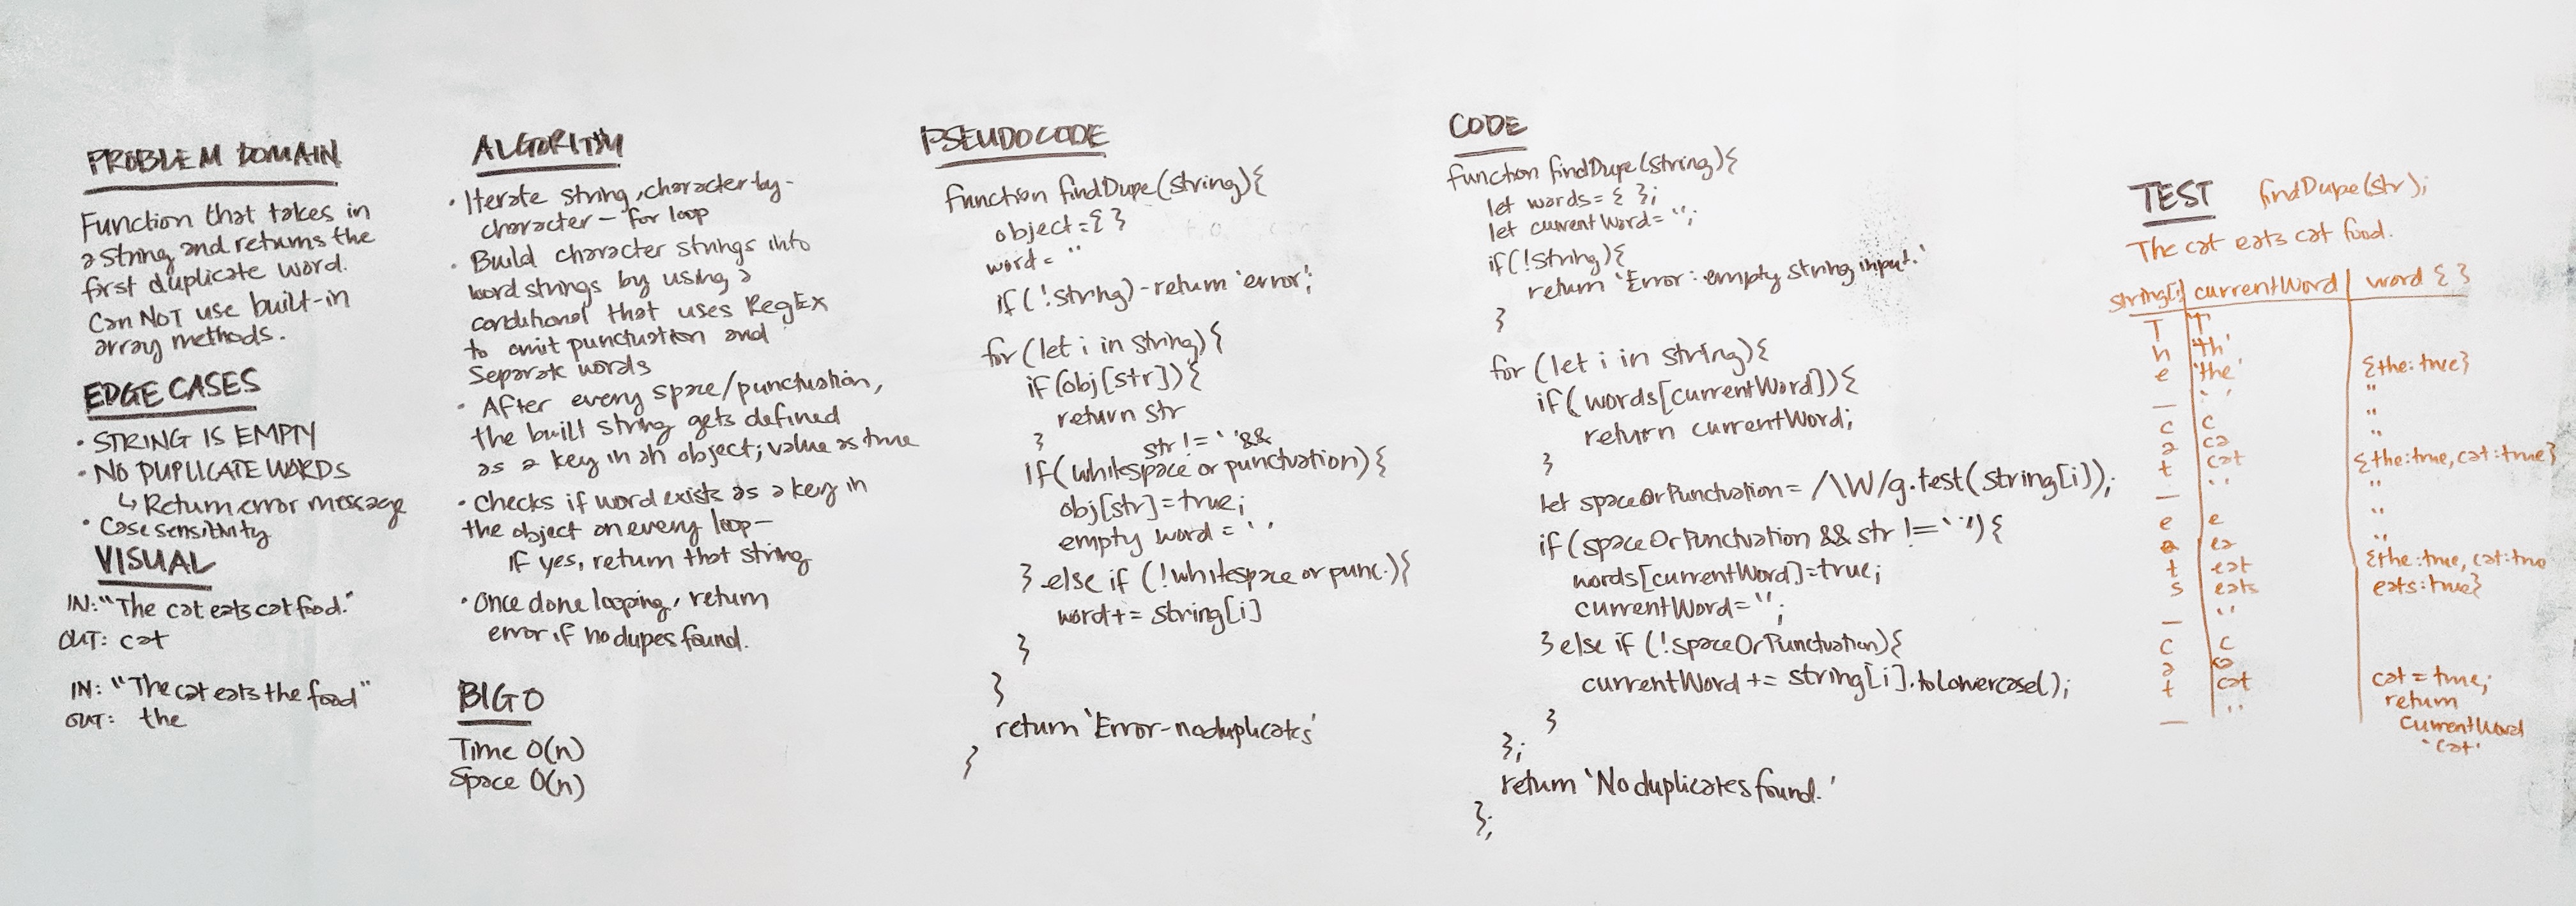 PROBLEM DOMAIN
Function that takes in
a string and returns the
first duplicate word.
Can NOT use built-in
array methods.
EDGE CASES
• STRING IS EMPTY
• NO DUPLICATE WORDS
↳ Return error message
• Case sensitivity
VISUAL
IN: "The cat eats cat food."
OUT: cat
IN: "The cat eats the food"
OUT: the
ALGORITHM
• Iterate string, character-by-
character – for loop
• Build character strings into
word strings by using a
conditional that uses RegEx
to omit punctuation and
separate words
• After every space/punctuation,
the built string gets defined
as a key in an object; value as true
• Checks if word exists as a key in
the object on every loop –
if yes, return that string
• Once done looping, return
error if no dupes found.
BIG O
Time O(n)
Space O(n)
PSEUDOCODE
function findDupe(string){
object = { }
word = ''
if(!string) - return 'error';
for (let i in string){
if(obj[str]){
return str
}
str != ' ' &&
if(whitespace or punctuation){
obj[str] = true;
empty word = ' '
} else if (!whitespace or punc.){
word += string[i]
}
}
return 'Error-no duplicates'
}
CODE
function findDupe(string){
let words = { };
let currentWord = '';
if(!string){
return 'Error: empty string input.'
}
for (let i in string){
if(words[currentWord]){
return currentWord;
}
let spaceOrPunctuation = /\W/g.test(string[i]);
if(spaceOrPunctuation && str != ' '){
words[currentWord] = true;
currentWord = '';
} else if (!spaceOrPunctuation){
currentWord += string[i].toLowercase();
}
};
return 'No duplicates found.'
};
TEST findDupe(str);
The cat eats cat food.
string[i] | currentWord | word { }
T 'T'
h 'th'
e 'the' {the:true}
_ ' ' "
c c "
a ca "
t cat {the:true, cat:true}
_ ' ' "
e e "
a ea "
t eat {the:true, cat:true
s eats eats:true}
_ ' '
c c
a ca
t cat cat = true;
_ ' ' return
currentWord
'cat'